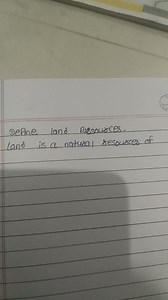 Define land Resources.
land is a natural resources of